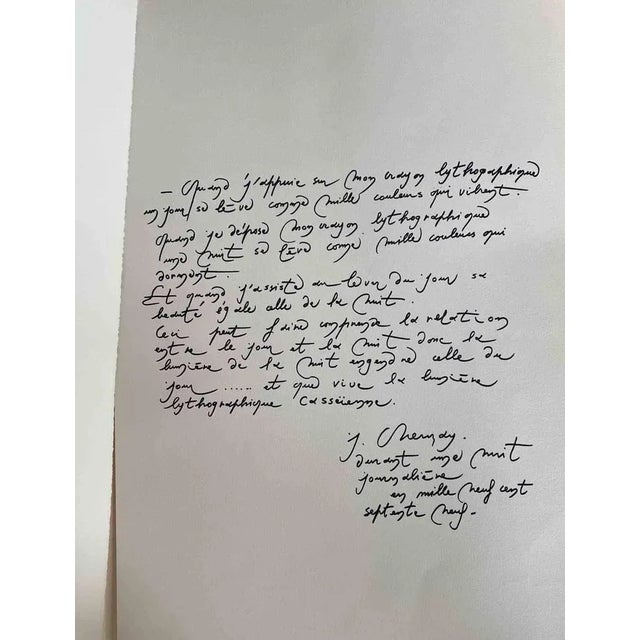 — Quand j'appuie sur mon crayon lythographique
un jour se lève comme mille couleurs qui vibrent.
Quand je dépose mon crayon lythographique
une nuit se lève comme mille couleurs qui
dorment.
Et quand j'assiste au lever du jour sa
beauté égale celle de la nuit.
Ceci peut faire comprendre la relation
entre le jour et la nuit donc la
lumière de la nuit engendre celle du
jour ...... et que vive la lumière
lythographique Casséienne.
J.
durant une nuit
journalière
en mille neuf cent
septente neuf.